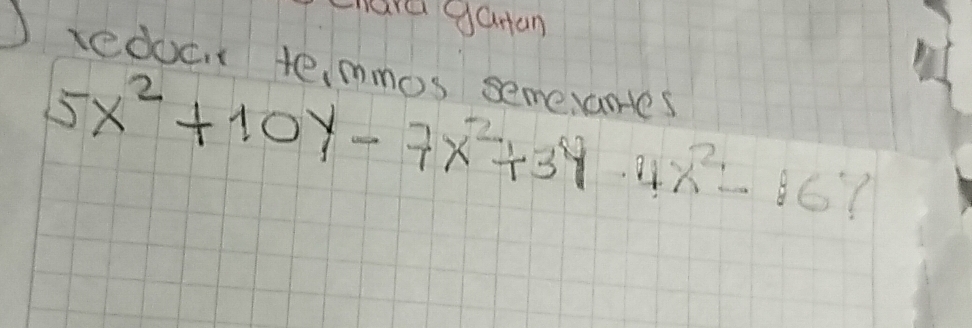 gartan
) reducir terminos semejantes
5x² + 10y - 7x² + 3y - 4x² - 16y